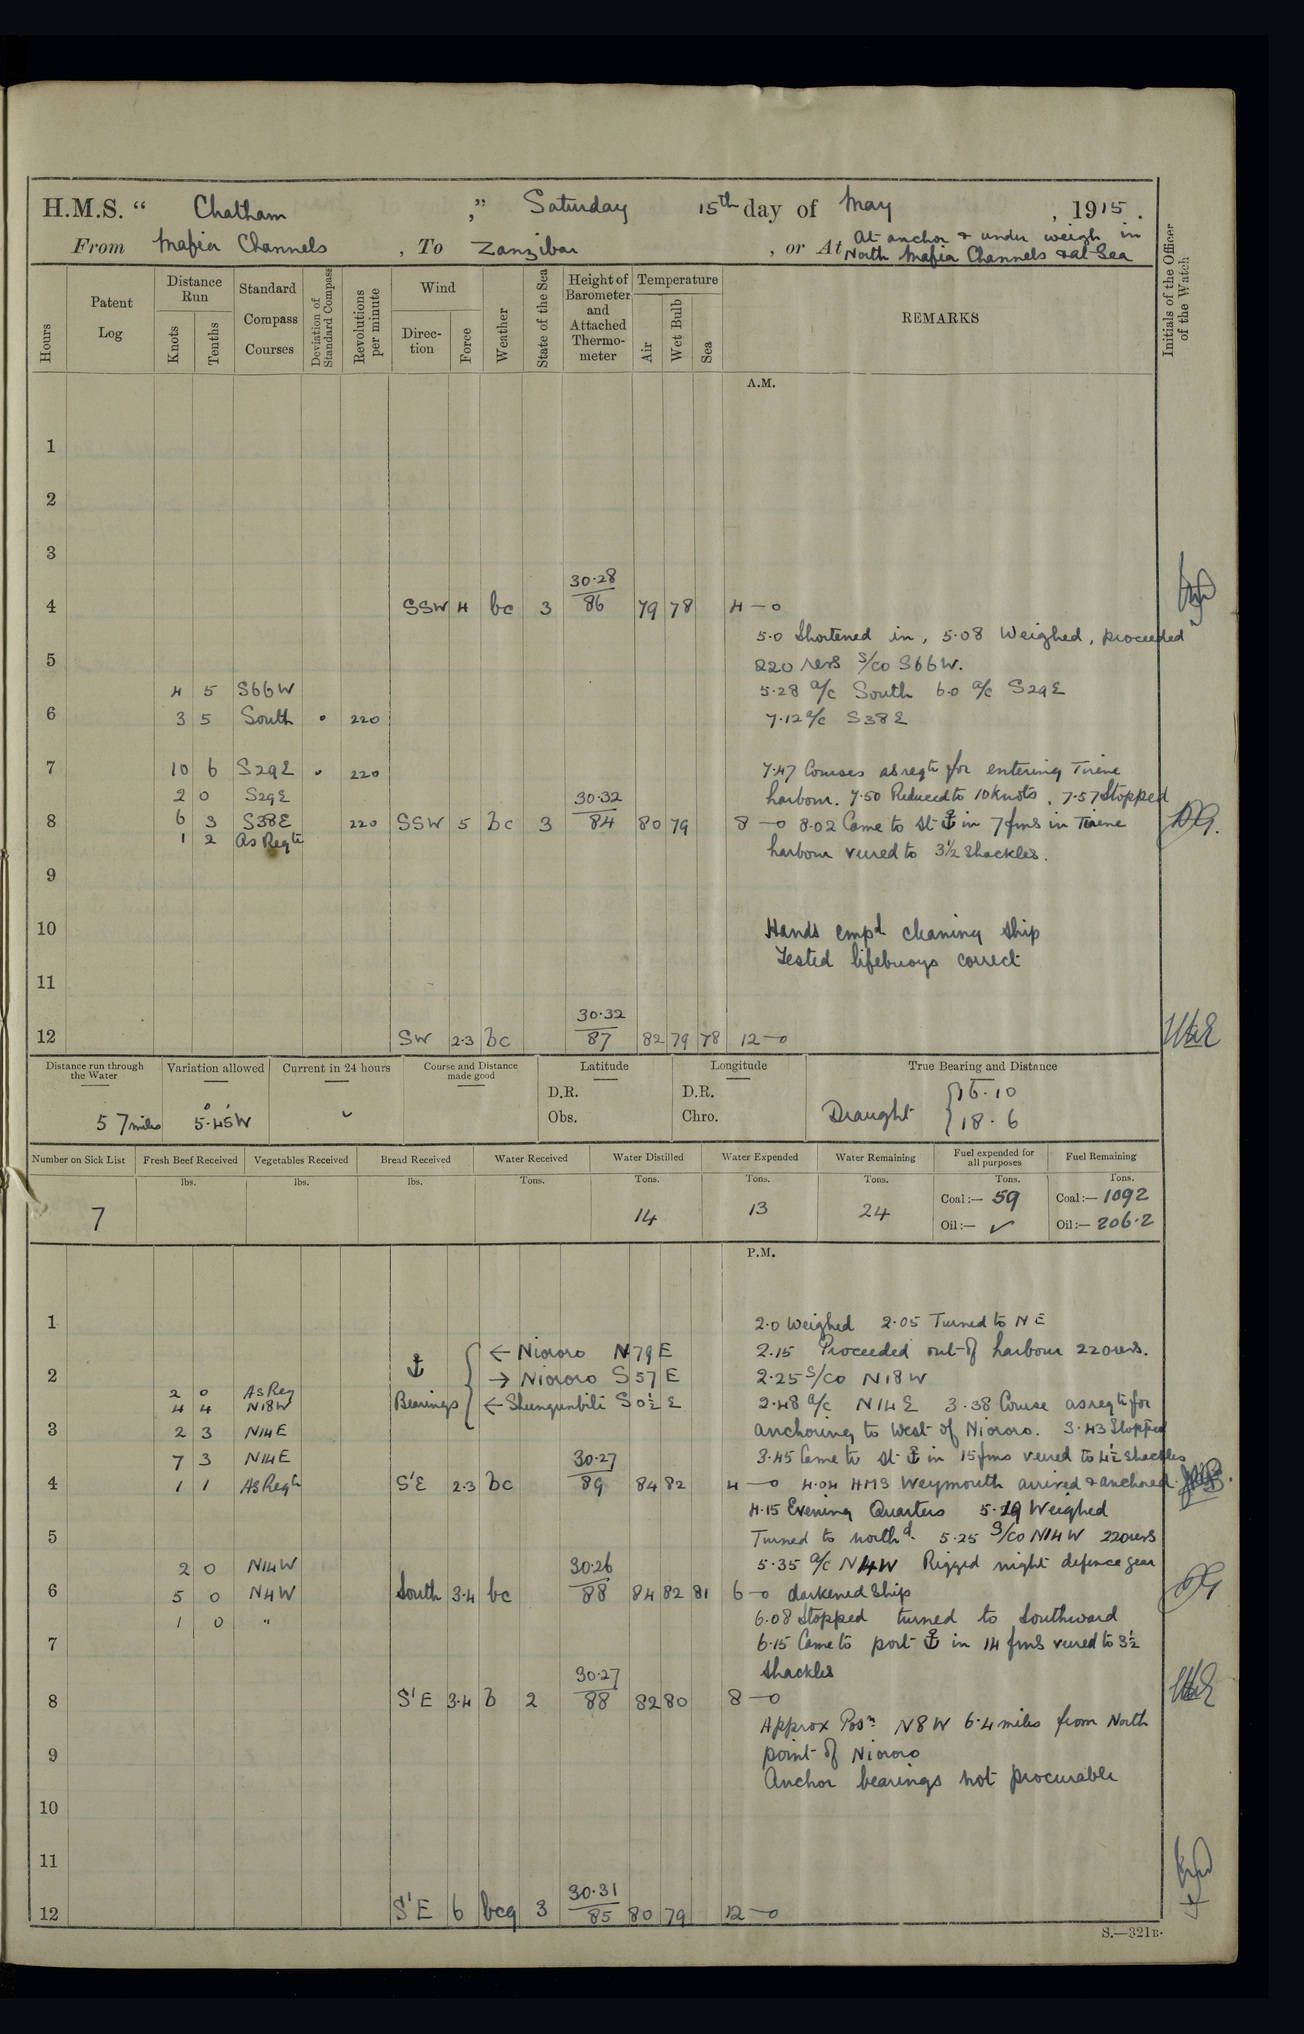 H.M.S. “ Chatham ,” Saturday 15th day of May , 1915 .
From Mafia Channels , To Zanzibar , or At At anchor & under weigh in
North Mafia Channels & at Sea
Initials of the Officer of the Watch
Hours
Patent Log
Distance Run
Knots
Tenths
Standard Compass Courses
Deviation of Standard Compass
Revolutions per minute
Wind
Direc-tion
Force
Weather
State of the Sea
Height of Barometer and Attached Thermo-meter
Temperature
Air
Wet Bulb
Sea
REMARKS
A.M.
1
2
3
30·28
4 SSW 4 bc 3 86 79 78 4 — 0
5·0 Shortened in, 5·08 Weighed, proceeded
5 220 revs S/Co S66W.
4 5 S66W 5·28 a/c South 6·0 a/c S29E
6 3 5 South 220 7·12 a/c S38E
7 10 6 S29E 220 7·47 Courses as reqte for entering Tirene
2 0 S29E 30·32 harbour. 7·50 Reduced to 10 knots, 7·57 Stopped
8 6 3 S38E 220 SSW 5 bc 3 84 80 79 8 — 0 8·02 Came to St ⚓ in 7 fms in Tirene
1 2 As Reqte harbour veered to 3½ Shackles.
9
10 Hands empd cleaning ship
Tested lifebuoys correct
11
30·32
12 SW 2·3 bc 87 82 79 78 12 — 0
Distance run through the Water
Variation allowed
Current in 24 hours
Course and Distance made good
Latitude
Longitude
True Bearing and Distance
D.R. D.R. 16·10
57 miles 5°·45'W Obs. Chro. Draught 18·6
Number on Sick List
Fresh Beef Received
Vegetables Received
Bread Received
Water Received
Water Distilled
Water Expended
Water Remaining
Fuel expended for all purposes
Fuel Remaining
lbs. lbs. lbs. Tons. Tons. Tons. Tons. Tons. Tons.
7 14 13 24 Coal:— 59 Coal:— 1092
Oil:— ✓ Oil:— 206·2
P.M.
1 2·0 Weighed 2·05 Turned to NE
← Niororo N79E 2·15 Proceeded out of harbour 220 revs.
2 ⚓ → Niororo S57E 2·25 S/Co N18W
2 0 As Req
4 4 N18W Bearings ← Shungunbili S0½E 2·48 a/c N14E 3·38 Course as reqte for
3 2 3 N14E anchoring to West of Niororo. 3·43 Stopped
7 3 N14E 30·27 3·45 Came to St ⚓ in 15 fms veered to 4½ shackles
4 1 1 As Reqte S'E 2·3 bc 89 84 82 4 — 0 4·04 HMS Weymouth arrived & anchored
4·15 Evening Quarters 5·19 Weighed
5 Turned to northd. 5·25 S/Co N14W 220 revs
2 0 N14W 30·26 5·35 a/c N4W Rigged night defence gear
6 5 0 N4W South 3·4 bc 88 84 82 81 6 — 0 darkened Ship
1 0 " 6·08 Stopped turned to Southward
7 6·15 Came to port ⚓ in 14 fms veered to 3½
30·27 Shackles
8 S'E 3·4 b 2 88 82 80 8 — 0
Approx Posn N8W 6·4 miles from North
9 point of Niororo
Anchor bearings not procurable
10
11
30·31
12 S'E 6 bcq 3 85 80 79 12 — 0
S.—321B.